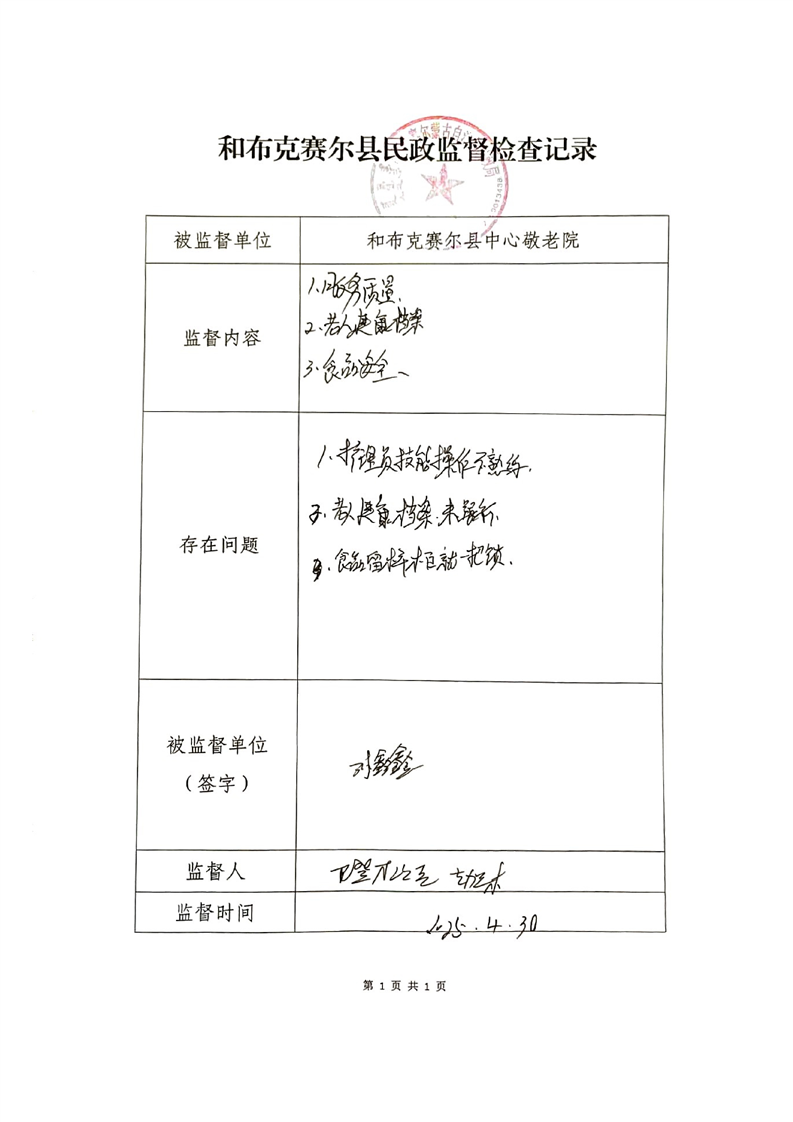 和布克赛尔县民政监督检查记录
被监督单位 和布克赛尔县中心敬老院
监督内容
1、服务质量.
2、老人健康档案
3、食品安全、
存在问题
1、护理员技能操作不熟练.
2、老人健康档案.未更新.
3、食品留样柜就一把锁.
被监督单位
（签字）
刘鑫鑫
监督人
监督时间 2025.4.30
第 1 页 共 1 页